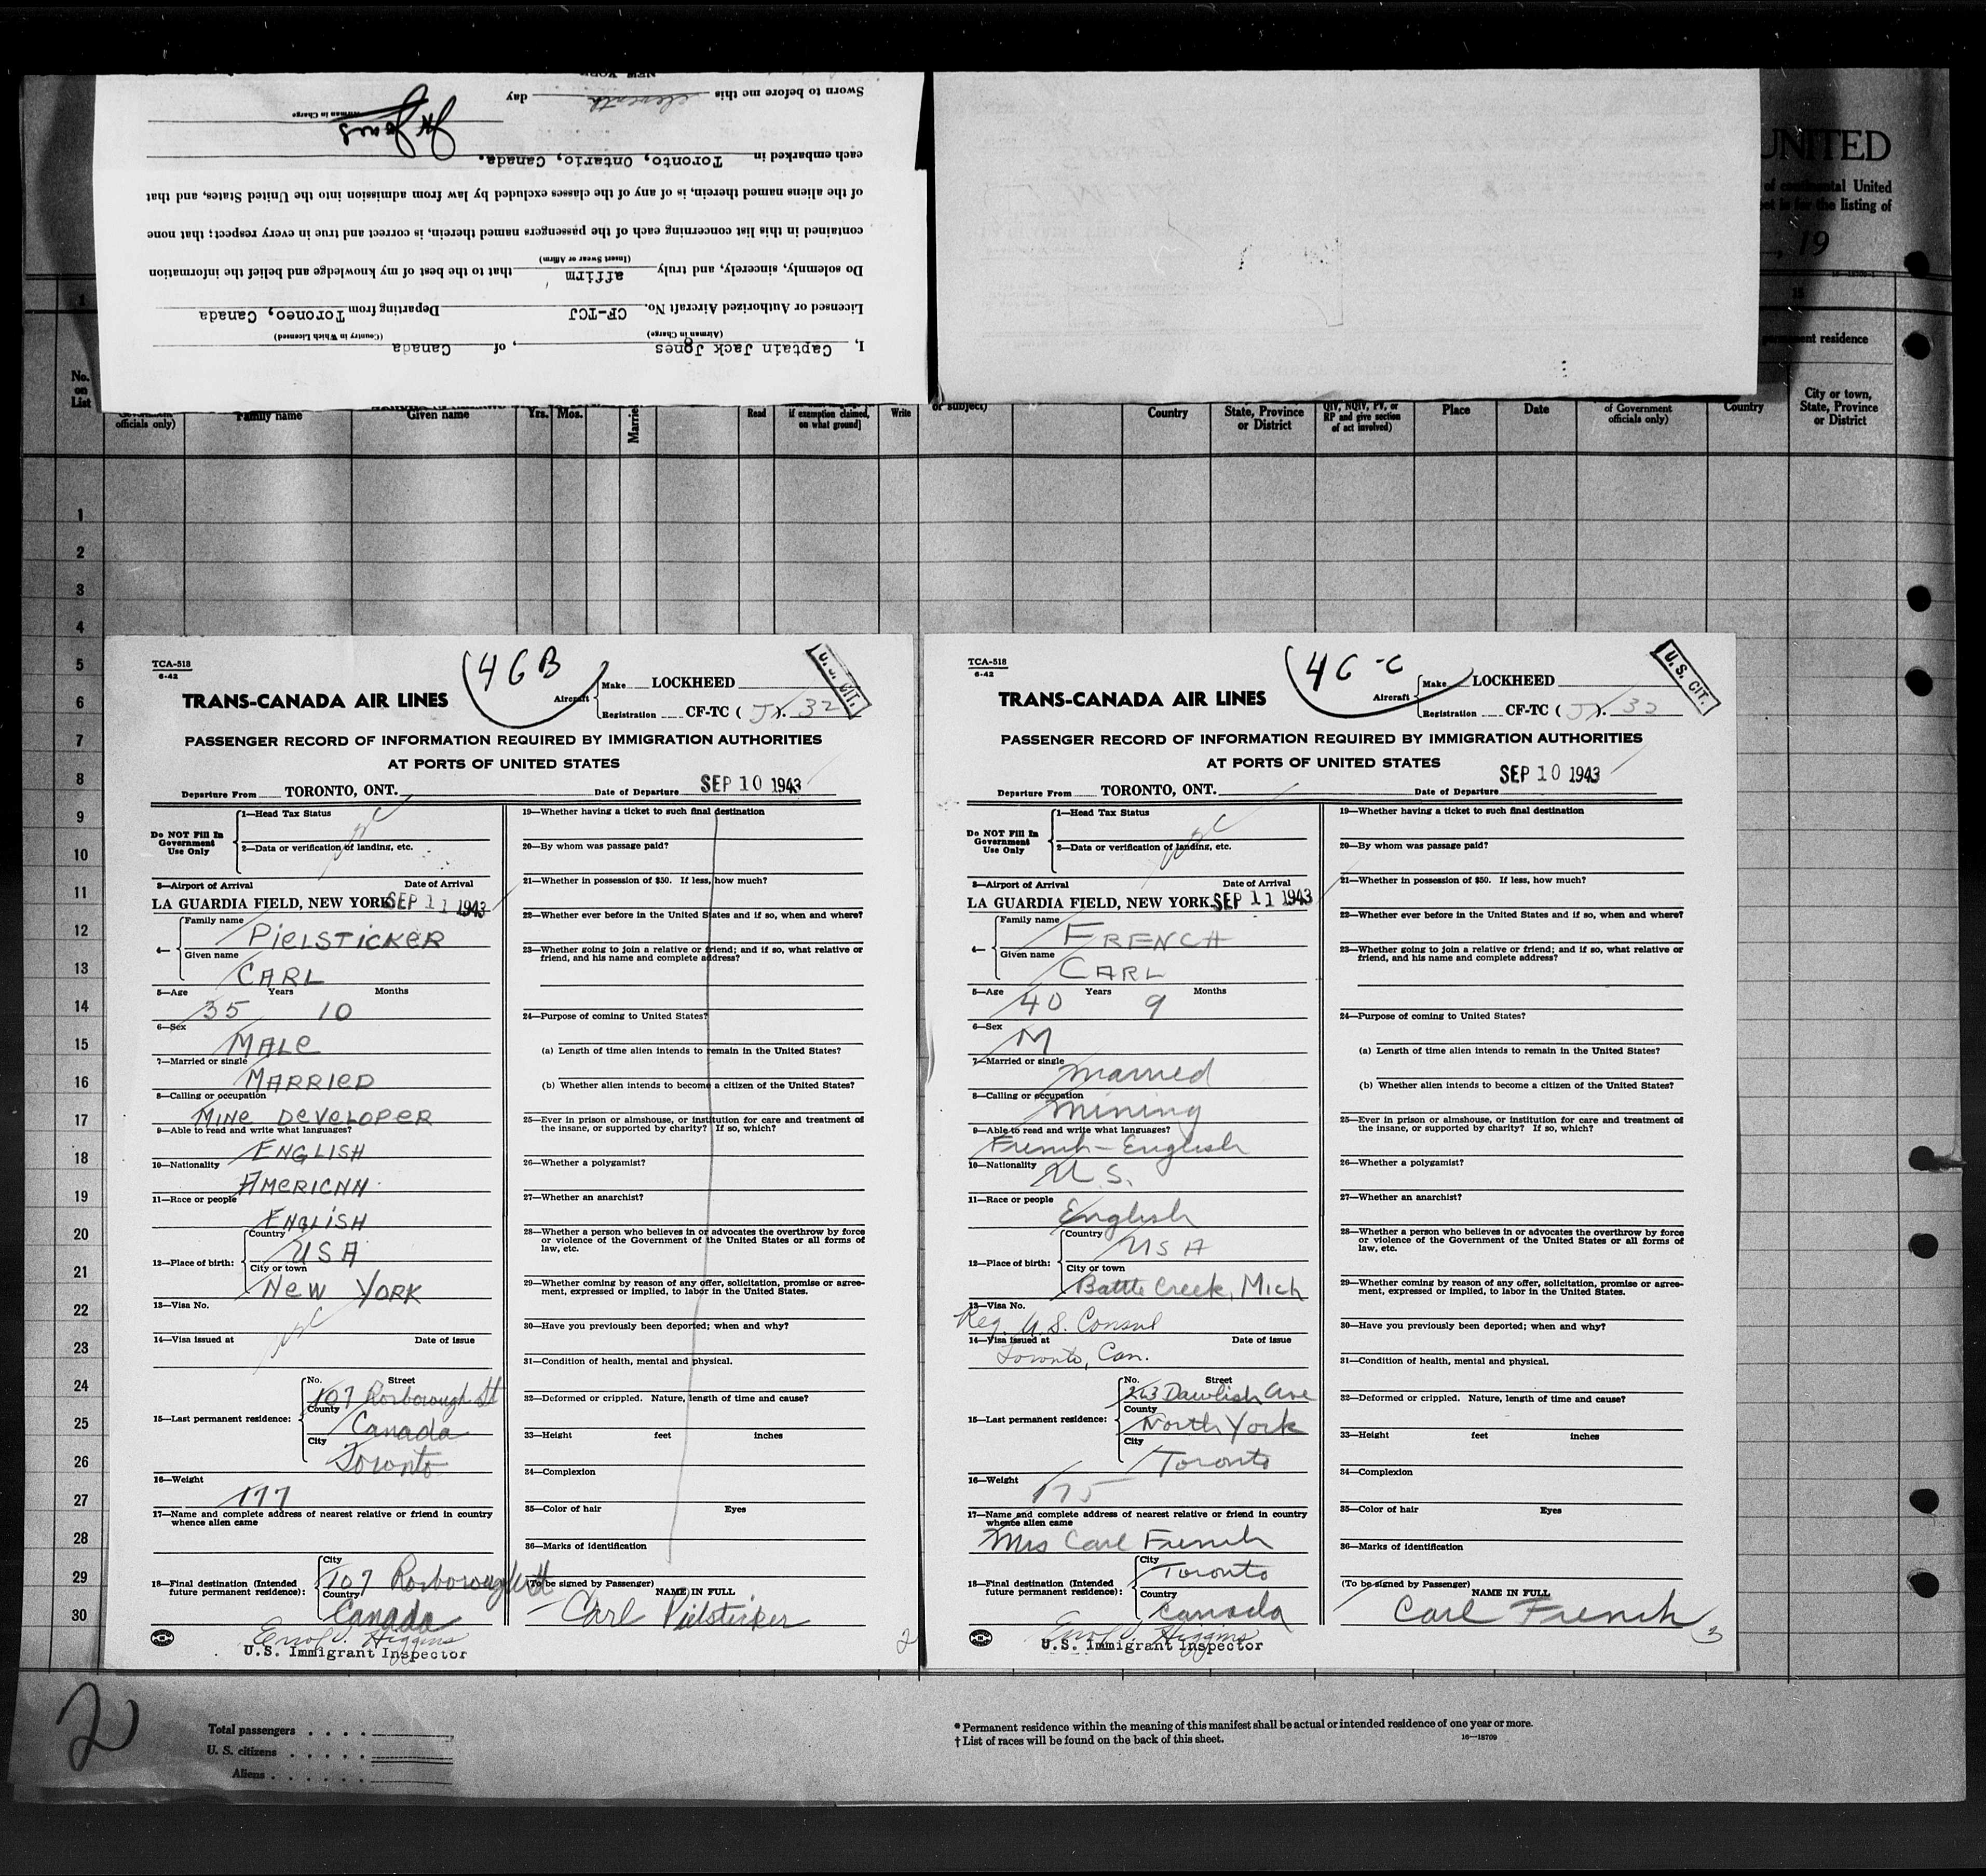 NEW YORK
Sworn to before me this eleventh day
Airman in Charge
each embarked in Toronto, Ontario, Canada.
of the aliens named therein, is of any of the classes excluded by law from admission into the United States, and that
contained in this list concerning each of the passengers named therein, is correct and true in every respect; that none
(Insert Swear or Affirm)
Do solemnly, sincerely, and truly affirm that to the best of my knowledge and belief the information
Licensed or Authorized Aircraft No. CF-TCJ Departing from Toroneo, Canada
(Airman in Charge) (Country in Which Licensed)
I, Captain Jack Jones, of Canada
UNITED
of continental United
for the listing of
, 19
15
permanent residence
No. on List
officials only)
Family name
Given name
Yrs.
Mos.
Married
Read
if exemption claimed, on what ground]
Write
or subject)
Country
State, Province or District
QIV, NQIV, PV, or RP and give section of act involved)
Place
Date
of Government officials only)
Country
City or town, State, Province or District
1
2
3
4
5
6
7
8
9
10
11
12
13
14
15
16
17
18
19
20
21
22
23
24
25
26
27
28
29
30
TCA-518
6-42
4GB
U.S. CIT.
TRANS-CANADA AIR LINES
Aircraft
Make LOCKHEED
Registration CF-TC ( J ). 32
PASSENGER RECORD OF INFORMATION REQUIRED BY IMMIGRATION AUTHORITIES
AT PORTS OF UNITED STATES
Departure From TORONTO, ONT. Date of Departure SEP 10 1943
Do NOT Fill In Government Use Only
1—Head Tax Status
2—Data or verification of landing, etc.
3—Airport of Arrival Date of Arrival
LA GUARDIA FIELD, NEW YORK SEP 11 1943
4— Family name PIELSTICKER
Given name CARL
5—Age 35 Years 10 Months
6—Sex MALE
7—Married or single MARRIED
8—Calling or occupation MINE DEVELOPER
9—Able to read and write what languages? ENGLISH
10—Nationality AMERICNN
11—Race or people ENGLISH
12—Place of birth: Country USA
City or town NEW YORK
13—Visa No.
14—Visa issued at Date of issue
15—Last permanent residence: No. Street 107 Roxborough St
County Canada
City Toronto
16—Weight 177
17—Name and complete address of nearest relative or friend in country
whence alien came
18—Final destination (Intended future permanent residence): City 107 Roxborough St
Country Canada
Errol J. Higgins
U.S. Immigrant Inspector
19—Whether having a ticket to such final destination
20—By whom was passage paid?
21—Whether in possession of $50. If less, how much?
22—Whether ever before in the United States and if so, when and where?
23—Whether going to join a relative or friend; and if so, what relative or
friend, and his name and complete address?
24—Purpose of coming to United States?
(a) Length of time alien intends to remain in the United States?
(b) Whether alien intends to become a citizen of the United States?
25—Ever in prison or almshouse, or institution for care and treatment of
the insane, or supported by charity? If so, which?
26—Whether a polygamist?
27—Whether an anarchist?
28—Whether a person who believes in or advocates the overthrow by force
or violence of the Government of the United States or all forms of
law, etc.
29—Whether coming by reason of any offer, solicitation, promise or agree-
ment, expressed or implied, to labor in the United States.
30—Have you previously been deported; when and why?
31—Condition of health, mental and physical.
32—Deformed or crippled. Nature, length of time and cause?
33—Height feet inches
34—Complexion
35—Color of hair Eyes
36—Marks of identification
(To be signed by Passenger) NAME IN FULL
Carl Pielsticker
2
TCA-518
6-42
4G-C
U.S. CIT.
TRANS-CANADA AIR LINES
Aircraft
Make LOCKHEED
Registration CF-TC ( J ). 32
PASSENGER RECORD OF INFORMATION REQUIRED BY IMMIGRATION AUTHORITIES
AT PORTS OF UNITED STATES
Departure From TORONTO, ONT. Date of Departure SEP 10 1943
Do NOT Fill In Government Use Only
1—Head Tax Status
2—Data or verification of landing, etc.
3—Airport of Arrival Date of Arrival
LA GUARDIA FIELD, NEW YORK SEP 11 1943
4— Family name FRENCH
Given name CARL
5—Age 40 Years 9 Months
6—Sex M
7—Married or single married
8—Calling or occupation mining
9—Able to read and write what languages? French-English
10—Nationality U.S.
11—Race or people English
12—Place of birth: Country USA
City or town Battle Creek, Mich
13—Visa No. Reg. U.S. Consul
14—Visa issued at Date of issue
Toronto, Can.
15—Last permanent residence: No. Street 263 Dawlish Ave
County North York
City Toronto
16—Weight 175
17—Name and complete address of nearest relative or friend in country
whence alien came
Mrs Carl French
18—Final destination (Intended future permanent residence): City Toronto
Country Canada
Errol J. Higgins
U.S. Immigrant Inspector
19—Whether having a ticket to such final destination
20—By whom was passage paid?
21—Whether in possession of $50. If less, how much?
22—Whether ever before in the United States and if so, when and where?
23—Whether going to join a relative or friend; and if so, what relative or
friend, and his name and complete address?
24—Purpose of coming to United States?
(a) Length of time alien intends to remain in the United States?
(b) Whether alien intends to become a citizen of the United States?
25—Ever in prison or almshouse, or institution for care and treatment of
the insane, or supported by charity? If so, which?
26—Whether a polygamist?
27—Whether an anarchist?
28—Whether a person who believes in or advocates the overthrow by force
or violence of the Government of the United States or all forms of
law, etc.
29—Whether coming by reason of any offer, solicitation, promise or agree-
ment, expressed or implied, to labor in the United States.
30—Have you previously been deported; when and why?
31—Condition of health, mental and physical.
32—Deformed or crippled. Nature, length of time and cause?
33—Height feet inches
34—Complexion
35—Color of hair Eyes
36—Marks of identification
(To be signed by Passenger) NAME IN FULL
Carl French
3
2
Total passengers . . . .
U. S. citizens . . . . .
Aliens . . . . . .
* Permanent residence within the meaning of this manifest shall be actual or intended residence of one year or more.
† List of races will be found on the back of this sheet.
16—18709